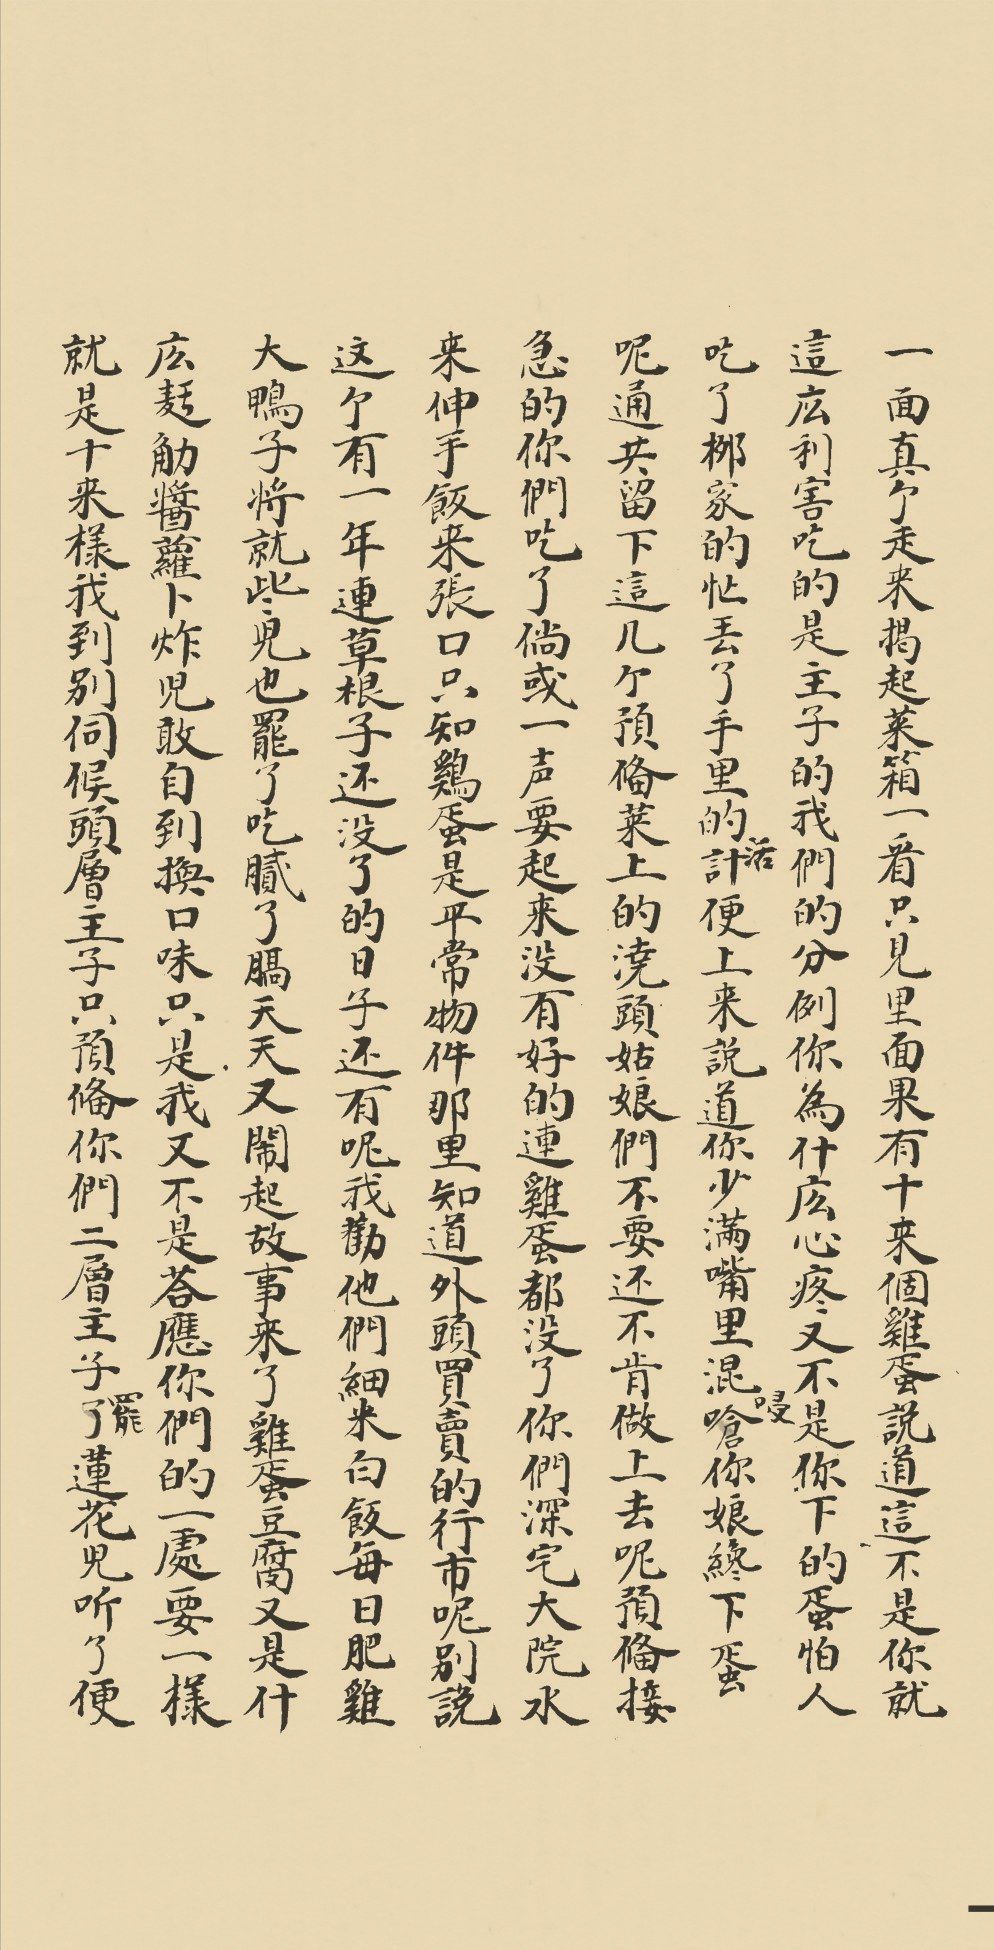 一面真个走来揭起菜箱一看只見里面果有十来個雞蛋説道這不是你就
這庅利害吃的是主子的我們的分例你為什庅心疼又不是你下的蛋怕人
吃了柳家的忙丢了手里的計活便上来説道你少满嘴里混唚你娘纔下蛋
呢通共留下這几个預俻菜上的澆頭姑娘們不要还不肯做上去呢預俻接
急的你們吃了倘或一声要起来没有好的連雞蛋都没了你們深宅大院水
来伸手飯来張口只知鷄蛋是平常物件那里知道外頭買賣的行市呢别説
这个有一年連草根子还没了的日子还有呢我勸他們細米白飯每日肥雞
大鴨子將就些兒也罷了吃膩了膈天天又鬧起故事来了雞蛋豆腐又是什
庅麪觔醬蘿卜炸児敢自到換口味只是我又不是荅應你們的一處要一樣
就是十来樣我到别伺候頭層主子只預俻你們二層主子罷了蓮花児听了便